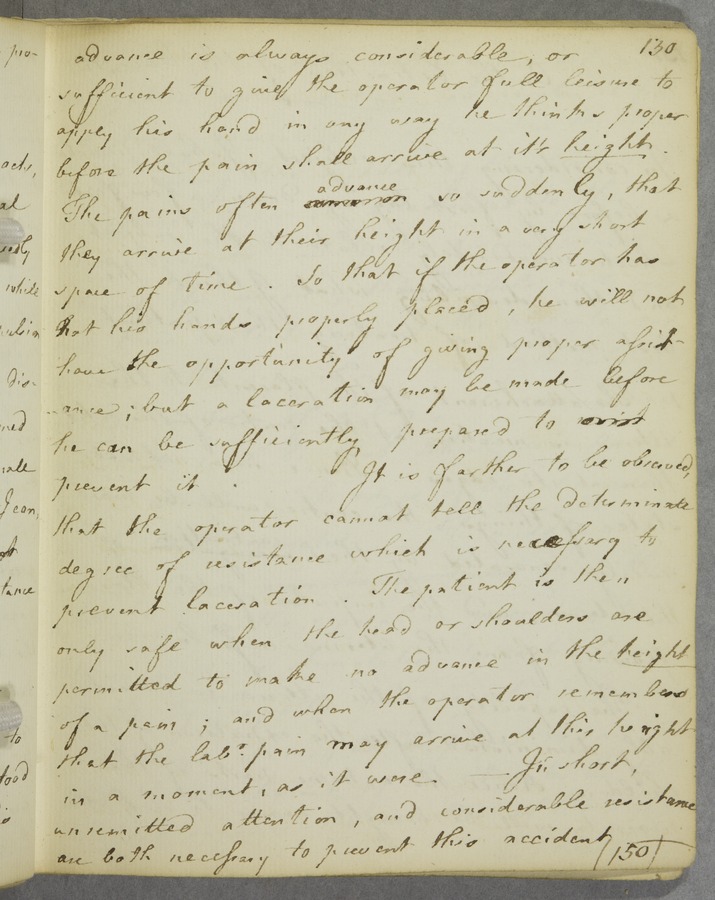 130
advance is always considerable, or
sufficient to give the operator full leisure to
apply his hand in any way he thinks proper
before the pain shall arrive at it's height.
The pains often advance so suddenly, that
they arrive at their height in a very short
space of time. So that if the operator has
not his hands properly placed, he will not
have the opportunity of giving proper assist-
-ance; but a laceration may be made before
he can be sufficiently prepared to
prevent it. It is farther to be observed,
that the operator cannot tell the determinate
degree of resistance which is necessary to
prevent laceration. The patient is then
only safe when the head or shoulders are
permitted to make no advance in the height
of a pain; and when the operator remembers
that the labr. pain may arrive at this height
in a moment, as it were. — In short,
unremitted attention, and considerable resistance
are both necessary to prevent this accident
(150)
pro-
acts,
al
while
dis-
ned
tance
to